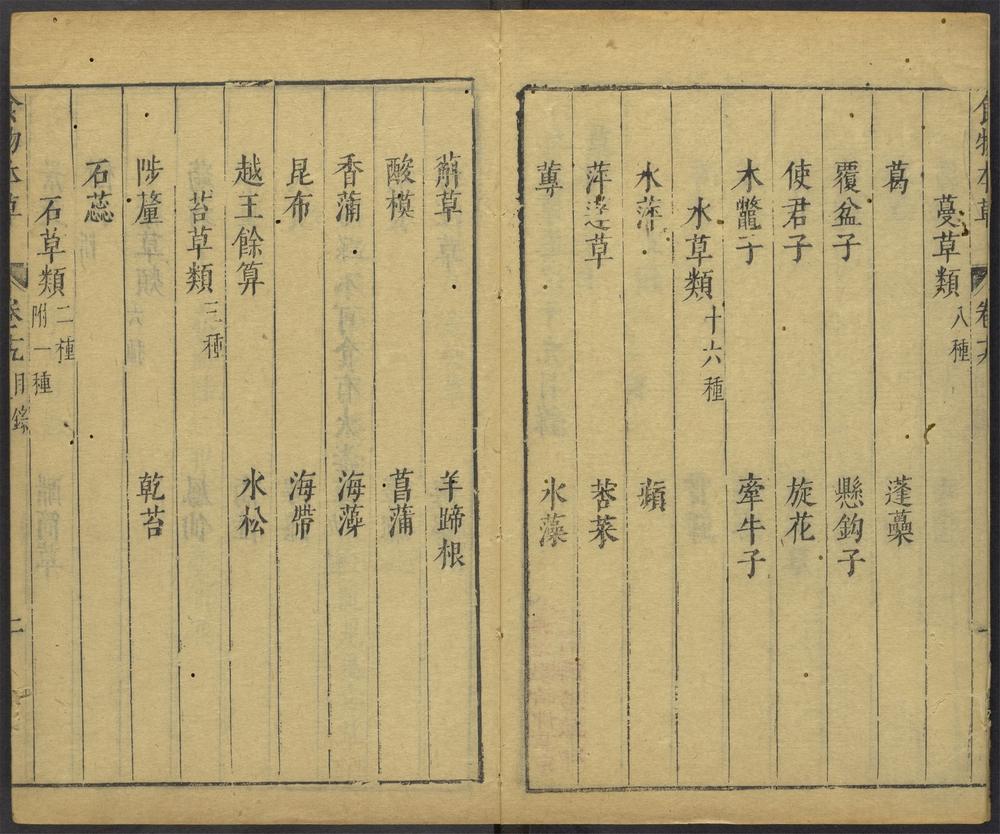 食物本草 卷十九
蔓草類八種
葛 蓬蘽
覆盆子 懸鈎子
使君子 旋花
木鼈子 牽牛子
水草類十六種
水萍 蘋
萍蓬草 莕菜
蓴 水藻
蔛草 羊蹄根
酸模 菖蒲
香蒲 海藻
昆布 海帶
越王餘算 水松
苔草類三種
陟釐 乾苔
石蕊
石草類二種附一種
食物本草 目錄 二